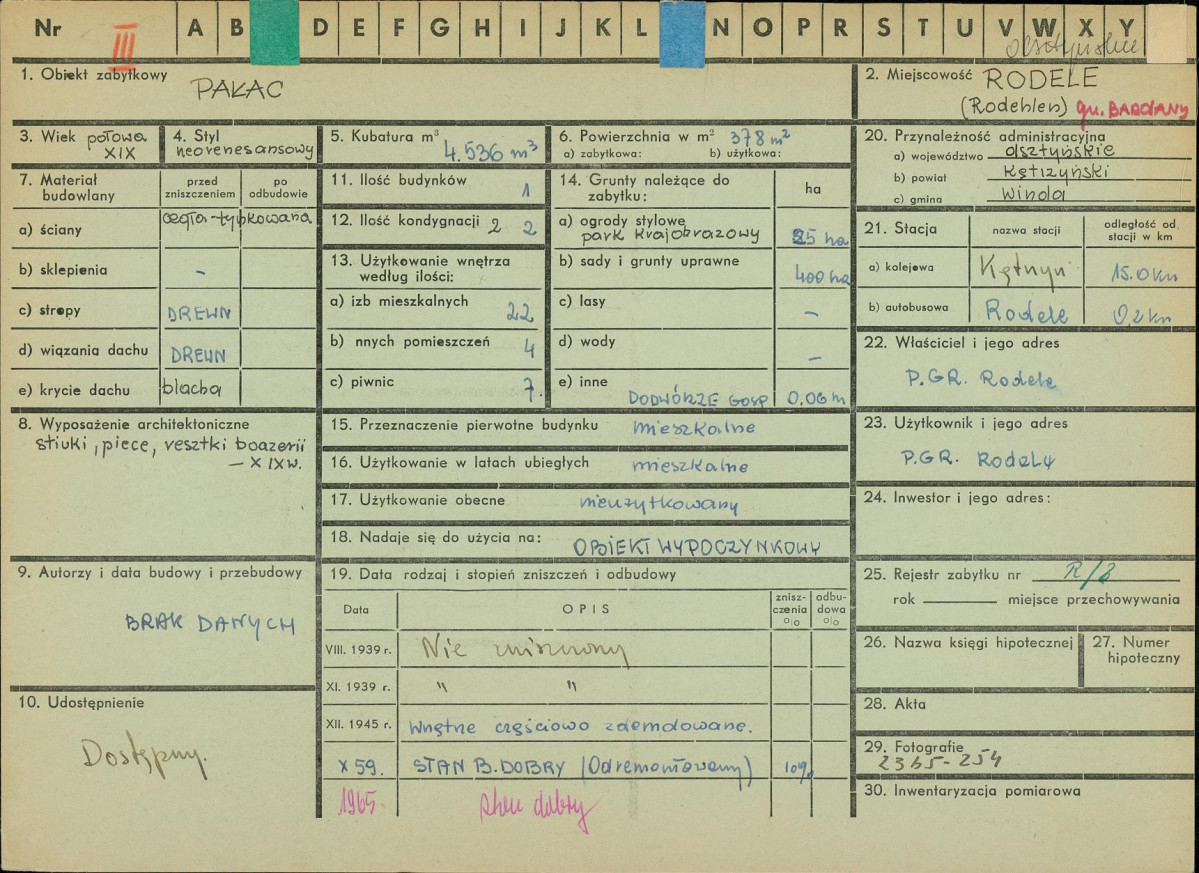 Nr III A B D E F G H I J K L N O P R S T U V W X Y
olsztyńskie
1. Obiekt zabytkowy
PAŁAC
2. Miejscowość RODELE
(Rodehlen) gm. BARCIANY
3. Wiek połowa
XIX
4. Styl
neorenesansowy
5. Kubatura m³
4.536 m³
6. Powierzchnia w m² 378 m²
a) zabytkowa: b) użytkowa:
7. Materiał
budowlany
przed
zniszczeniem
po
odbudowie
a) ściany
cegła-tynkowana
b) sklepienia –
c) stropy DREWN
d) wiązania dachu DREWN
e) krycie dachu blacha
8. Wyposażenie architektoniczne
stiuki, piece, resztki boazerii
– XIX w.
9. Autorzy i data budowy i przebudowy
BRAK DANYCH
10. Udostępnienie
Dostępny.
11. Ilość budynków 1
12. Ilość kondygnacji 2 2
13. Użytkowanie wnętrza
według ilości:
a) izb mieszkalnych 22
b) nnych pomieszczeń 4
c) piwnic 7.
14. Grunty należące do
zabytku:
ha
a) ogrody stylowe
park krajobrazowy
25 ha
b) sady i grunty uprawne
400 ha
c) lasy –
d) wody –
e) inne
PODWÓRZE GOSP 0,06 h
15. Przeznaczenie pierwotne budynku mieszkalne
16. Użytkowanie w latach ubiegłych mieszkalne
17. Użytkowanie obecne nieużytkowany
18. Nadaje się do użycia na: OBIEKT WYPOCZYNKOWY
19. Data rodzaj i stopień zniszczeń i odbudowy
Data
OPIS
znisz-
czenia
o|o
odbu-
dowa
o|o
VIII. 1939 r. Nie zniszczony
XI. 1939 r. " "
XII. 1945 r. Wnętrze częściowo zdemolowane.
X 59. STAN B.DOBRY (Odremontowany) 10%
1965 stan dobry
20. Przynależność administracyjna
a) województwo olsztyńskie
b) powiat Kętrzyński
c) gmina Winda
21. Stacja
nazwa stacji
odległość od
stacji w km
a) kolejowa Kętrzyn 15.0 km
b) autobusowa Rodele 0,2 km
22. Właściciel i jego adres
P.GR. Rodele
23. Użytkownik i jego adres
P.GR. Rodely
24. Inwestor i jego adres:
25. Rejestr zabytku nr R/3
rok miejsce przechowywania
26. Nazwa księgi hipotecznej
27. Numer
hipoteczny
28. Akta
29. Fotografie
2365-254
30. Inwentaryzacja pomiarowa